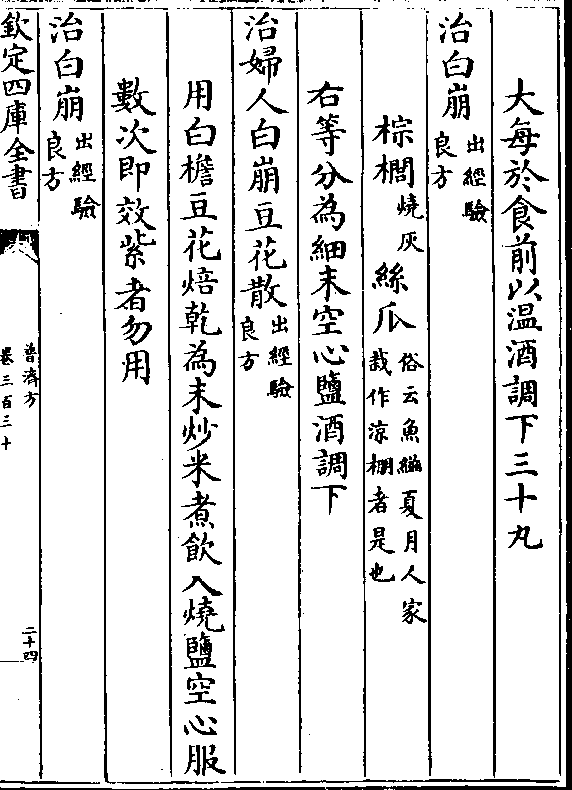 大每於食前以温酒調下三十丸
治白崩出經驗良方
棕櫚燒灰絲瓜俗云魚鰦夏月人家栽作涼棚者是也
右等分為細末空心鹽酒調下
治婦人白崩豆花散出經驗良方
用白檐豆花焙乾為末炒米煮飲入燒鹽空心服
數次即效紫者勿用
治白崩出經驗良方
欽定四庫全書
普濟方
卷三百三十
二十四